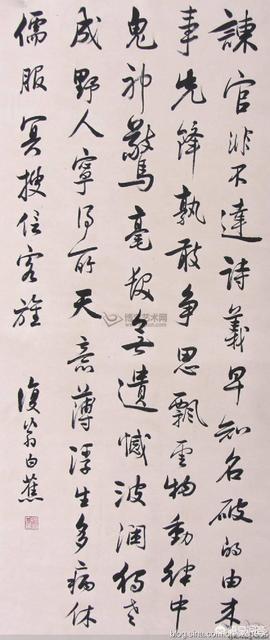 諫官非不達詩義早知名破的由来
事先鋒孰敢争思飄雲物動律中
鬼神驚毫髮无遺憾波瀾独老
成野人寧得所天意薄浮生多病休
儒服冥搜信客旌
復翁白蕉